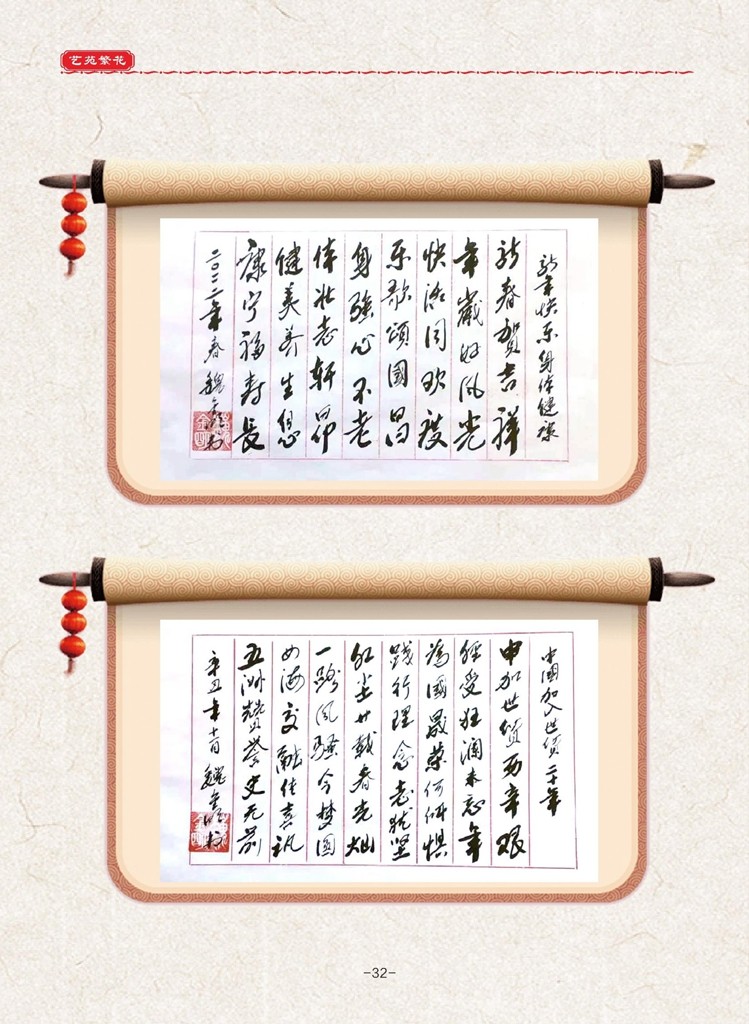 艺苑繁花
新年快乐身体健康
新春贺吉祥
年岁好风光
快活同欢度
乐歌颂国昌
身强心不老
体壮志轩昂
健美养生悠
康宁福寿长
二〇二二年春 魏金明书
中国加入世贸二十年
申加世贸历辛艰
经受狂澜未忘年
为国晟荣何所惧
践行理念志犹坚
红尘廿载春光灿
一路风骚今梦圆
四海交融佳喜讯
五洲赞誉史无前
辛丑年十一月 魏金明书
-32-